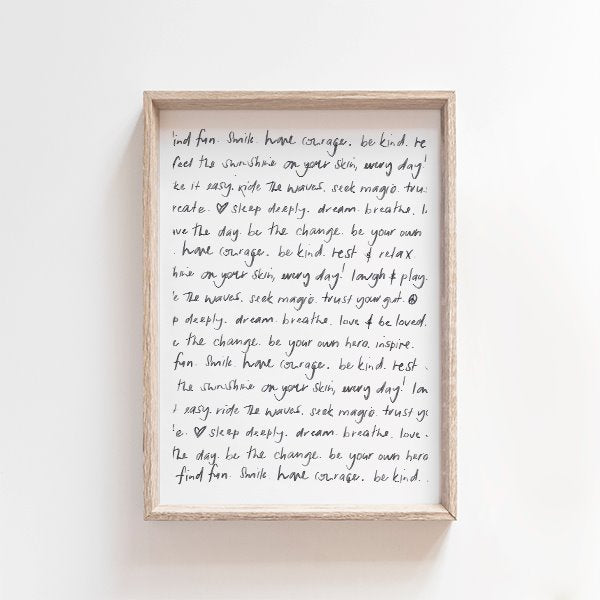 ind fun. Smile. have courage. be kind. re
feel the sunshine on your skin, every day!
ke it easy. ride the waves. seek magic. tru
reate. ♡ sleep deeply. dream. breathe. l
ive the day. be the change. be your own
. have courage. be kind. rest & relax
hine on your skin, every day! laugh & play.
e the waves. seek magic. trust your gut. ☮
p deeply. dream. breathe. love & be loved.
e the change. be your own hero. inspire.
fun. Smile. have courage. be kind. rest
the sunshine on your skin, every day! lau
t easy. ride the waves. seek magic. trust yo
e. ♡ sleep deeply. dream. breathe. love
the day. be the change. be your own hero
find fun. Smile. have courage. be kind. .